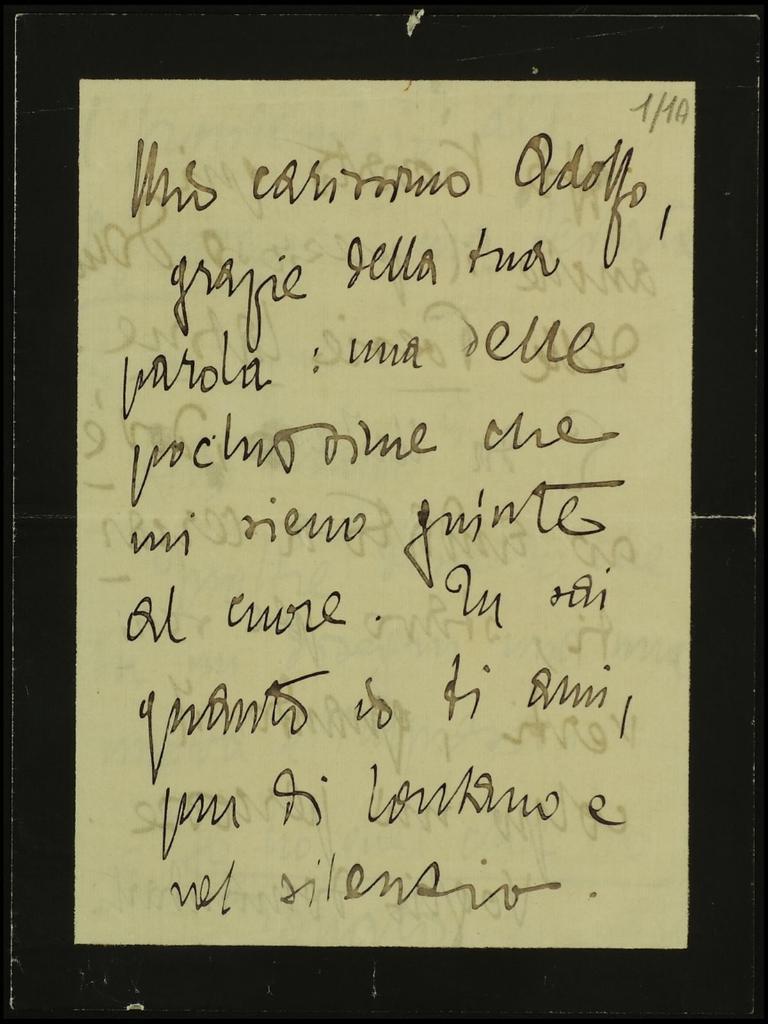 1/1A
Mio carissimo Adolfo,
grazie della tua
parola : una delle
pochissime che
mi sieno giunte
al cuore. Tu sai
quanto io ti ami,
pur di lontano e
nel silenzio.